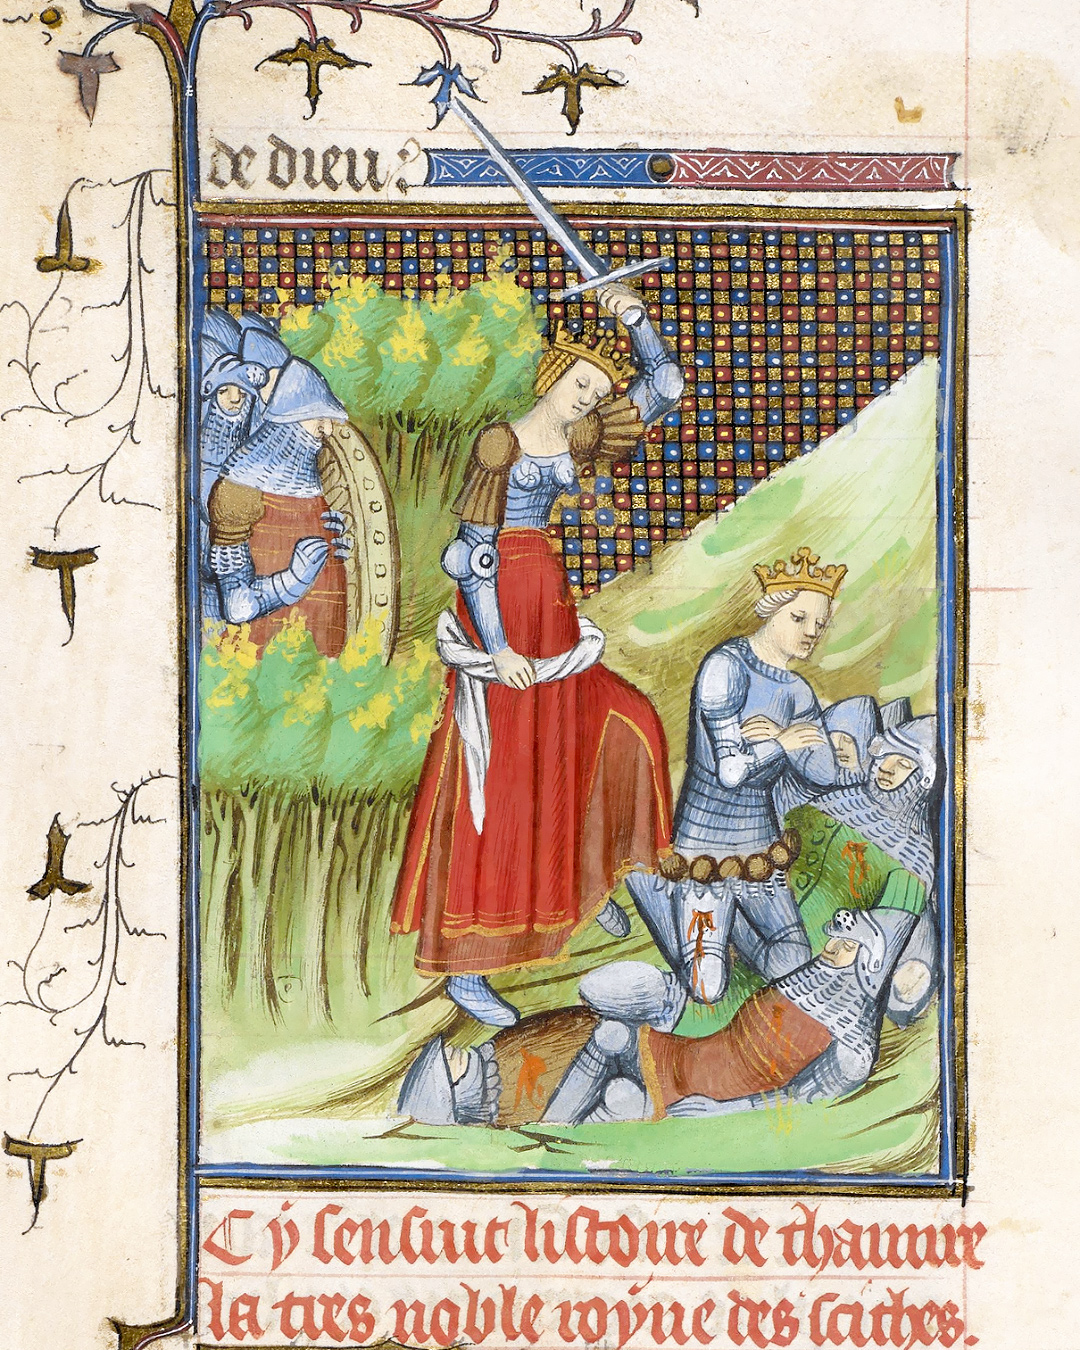 de dieu
Cy sensuit listoire de thamire
la tres noble royne des scithes.